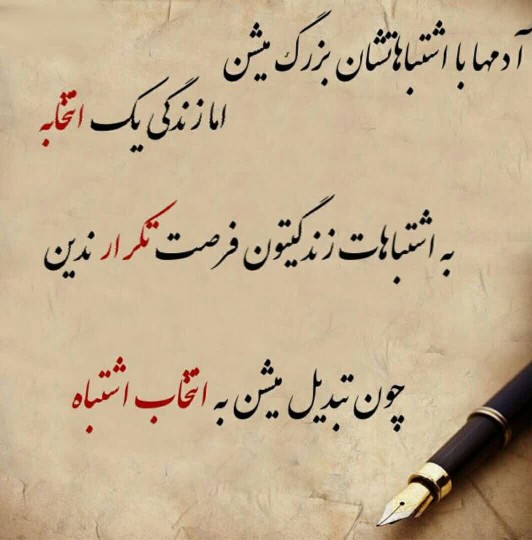 آدمها با اشتباهاتشان بزرگ میشن
اما زندگی یک انتخابه
به اشتباهات زندگیتون فرصت تکرار ندین
چون تبدیل میشن به انتخاب اشتباه